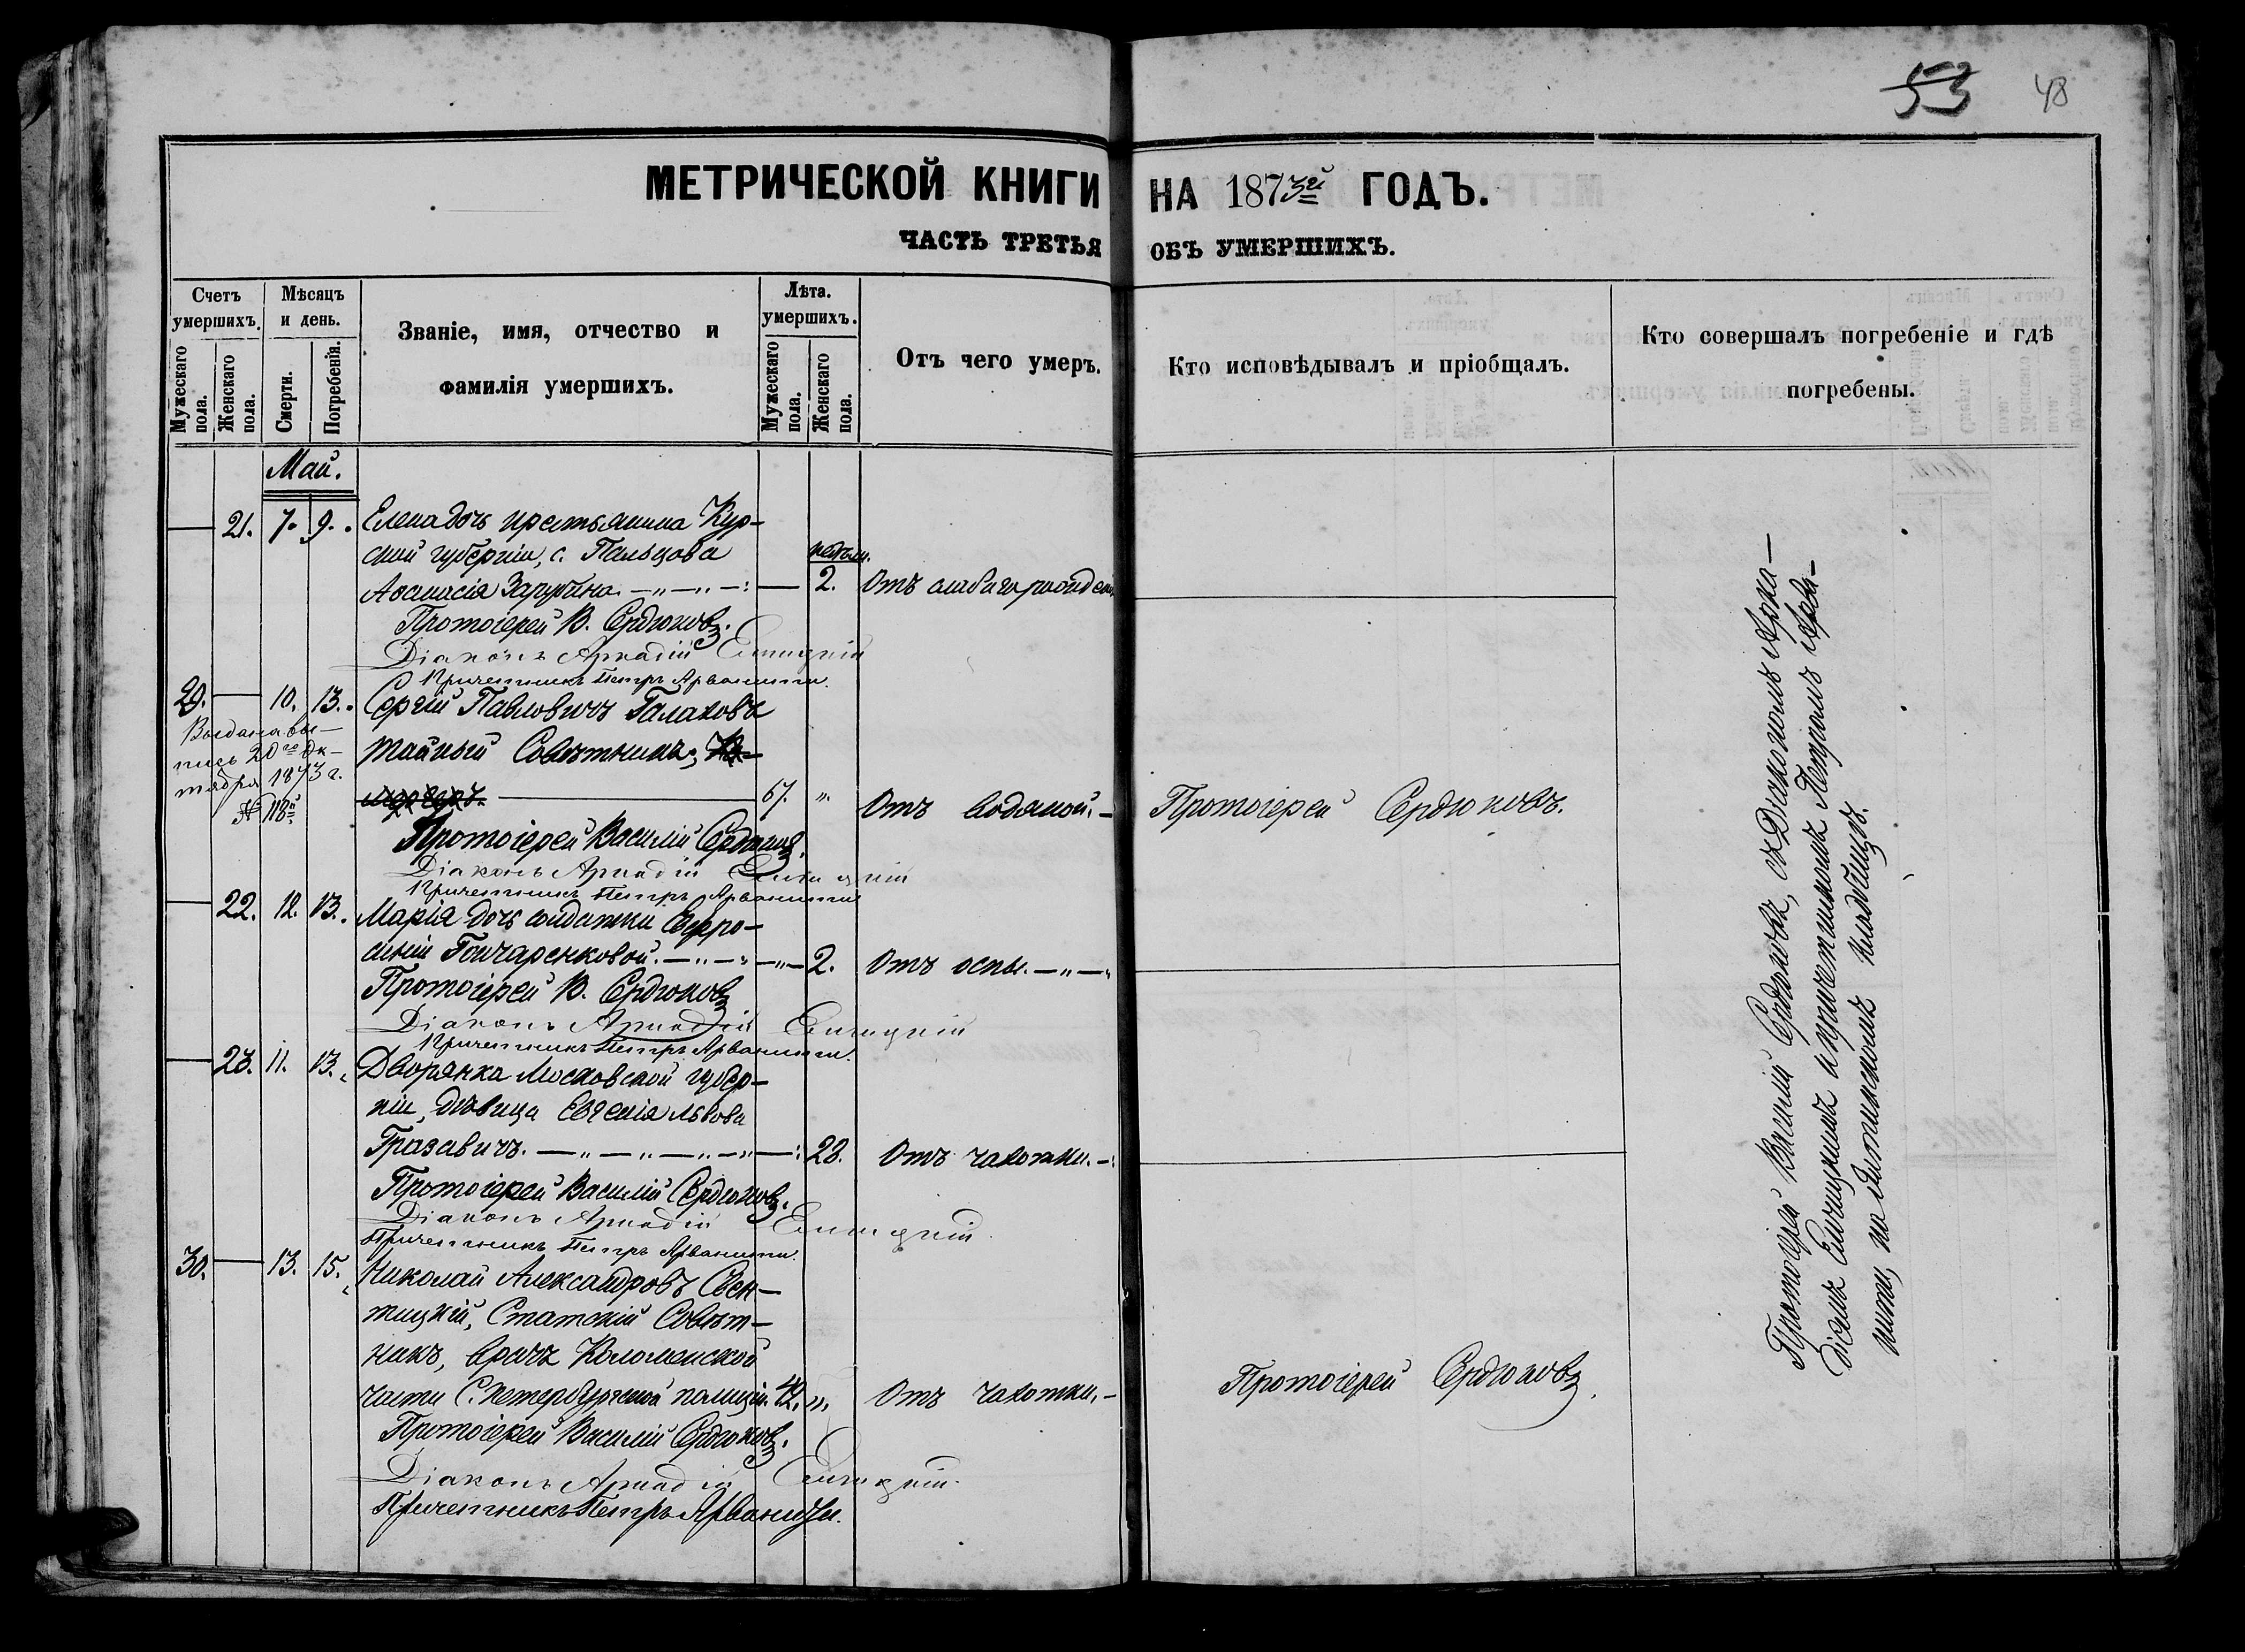 53 48
МЕТРИЧЕСКОЙ КНИГИ НА 1873й ГОДЪ.
ЧАСТЬ ТРЕТЬЯ ОБЪ УМЕРШИХЪ.
Счетъ умершихъ.
Мужескаго пола.
Женскаго пола.
Мѣсяцъ и день.
Смерти.
Погребенія.
Званіе, имя, отчество и
фамилія умершихъ.
Лѣта. умершихъ.
Мужескаго пола.
Женскаго пола.
Отъ чего умеръ.
Кто исповѣдывалъ и пріобщалъ.
Кто совершалъ погребеніе и гдѣ
погребены.
Май.
— 21. 7. 9. Елена дочь крестьянина Кур-
ской губерніи, с. Пальцова недѣли.
Аѳанасія Зарубина. — 2. Отъ слабаго рожденія
Протоіерей В. Сердюковъ.
Діаконъ Аркадій
Причетникъ Петръ Арванити.
29. — 10. 13. Сергій Павловичъ Галаховъ
Выдана вы-
пись 20го Ок-
тября 1873 г.
№ 118й
тайный Совѣтникъ,
67. „ Отъ водяной. — Протоіерей Сердюковъ.
Протоіерей Василій Сердюковъ.
Діаконъ Аркадій
Причетникъ Петръ Арванити
— 22. 12. 13. Марія дочь солдатки Евфро-
синіи Гончаренковой. — „ — 2. Отъ оспы. — „ —
Протоіерей В. Сердюковъ
Діаконъ Аркадій
Причетникъ Петръ Арванити.
— 23. 11. 13. Дворянка Московской губер-
ніи, дѣвица Евгенія Львова
Гразавичъ. — „ — „ — „ — 28. Отъ чахотки. —
Протоіерей Василій Сердюковъ.
Діаконъ Аркадій
Причетникъ Петръ Арванити.
30. — 13. 15. Николай Александровъ Свен-
тицкій, Статскій Совѣт-
никъ, врачъ Коломенской
части С.Петербургской полиціи. 42. „ Отъ чахотки. — Протоіерей Сердюковъ.
Протоіерей Василій Сердюковъ.
Діаконъ Аркадій
Причетникъ Петръ Арванити.
Протоіерей Василій Сердюковъ, съ Діакономъ Арка-
діемъ и причетникомъ Петромъ Арва-
нити, на кладбищѣ.